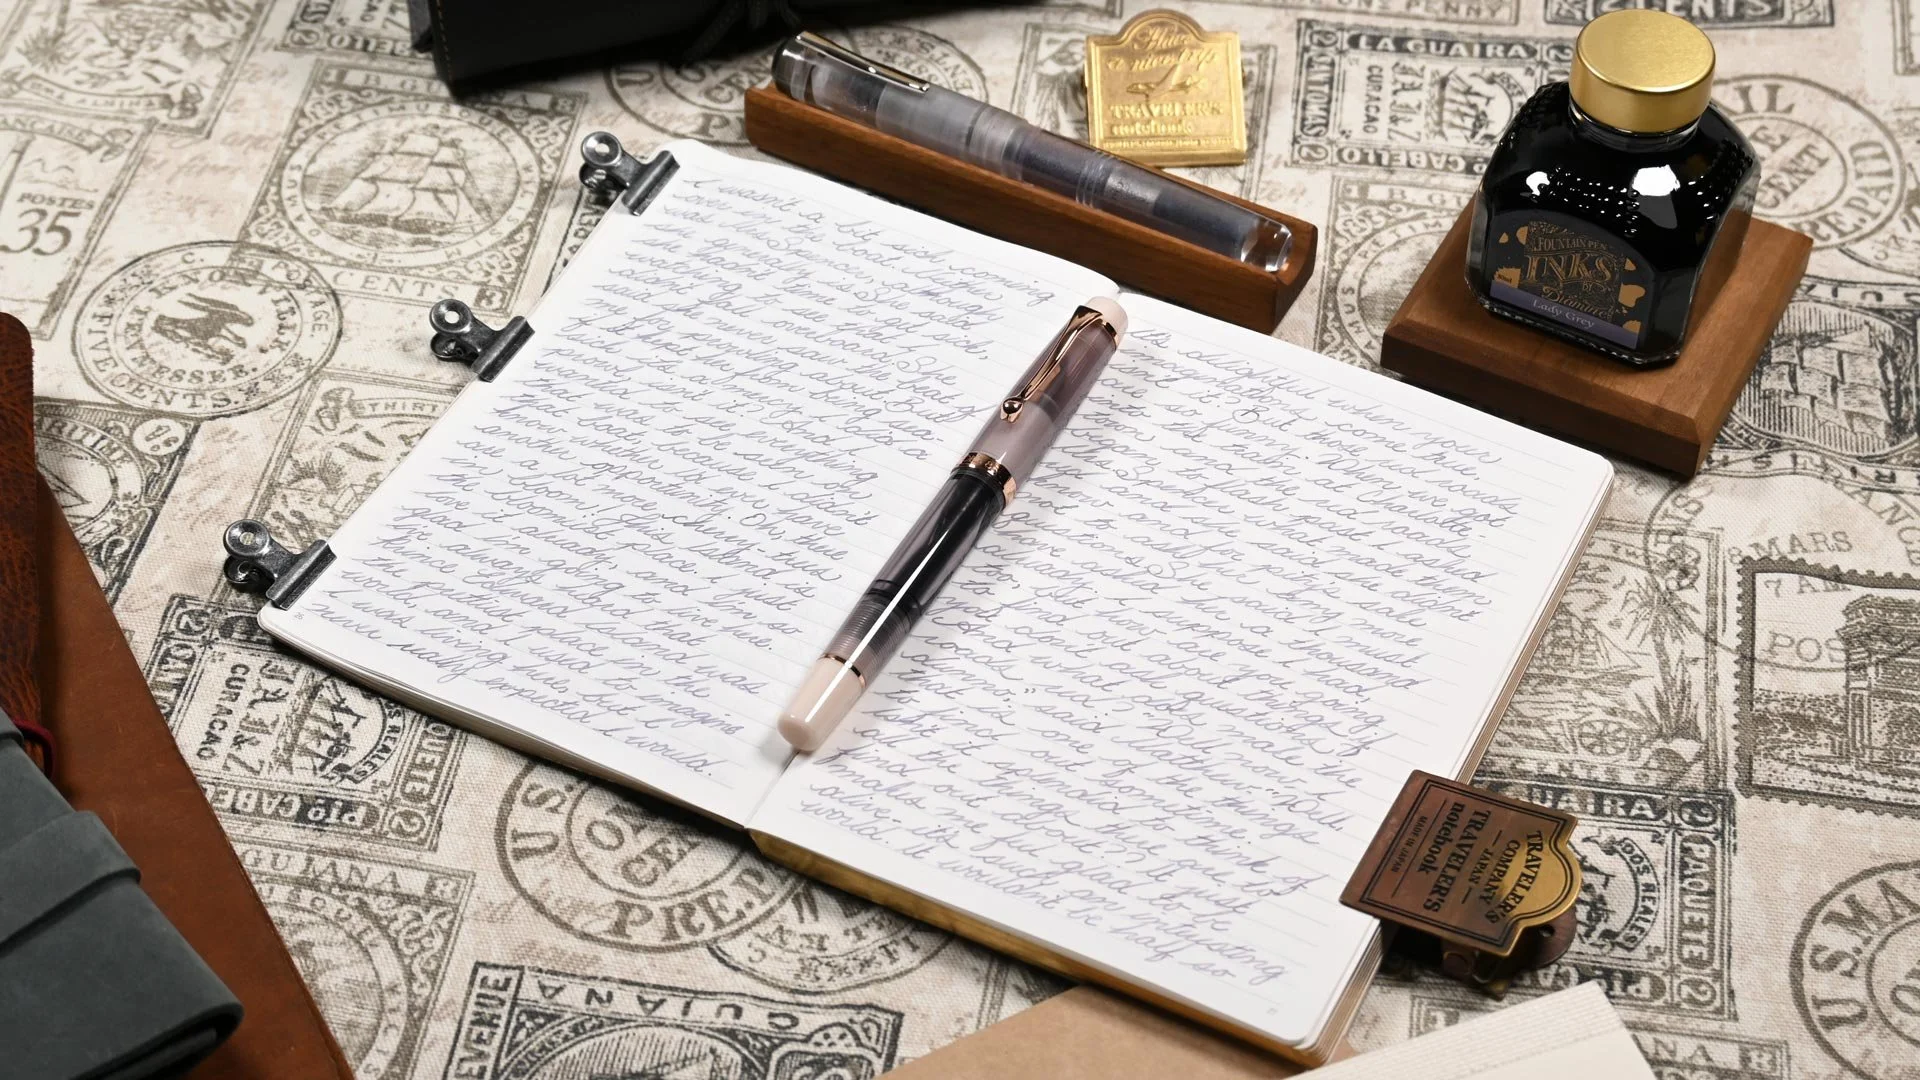 I wasn't a bit sick coming
over in the boat. Neither
was Mrs. Spencer, although
she generally is. She said
she hadn't time to get sick,
watching to see that I
didn't fall overboard. She
said she never saw the beat of
me for prowling about. But
if it kept her from being sea-
sick it's a mercy I did
prowl, isn't it? And I
wanted to see everything
that was to be seen on
that boat, because I didn't
know whether I'd ever have
another opportunity. Oh, there
are a lot more cherry-trees
in bloom! This Island is
the bloomiest place. I just
love it already, and I'm so
glad I'm going to live here.
I've always heard that
Prince Edward Island was
the prettiest place in the
world, and I used to imagine
I was living here, but I
never really expected I would.
It's delightful when your
imaginations come true,
isn't it? But those red roads
are so funny. When we got
into the train at Charlotte-
town and the red roads
began to flash past I asked
Mrs. Spencer what made them
red and she said she didn't
know and for pity's sake
not to ask her any more
questions. She said I must
have asked her a thousand
already. I suppose I had,
too, but how you going
to find out about things if
you don't ask questions?
And what does make the
roads red?" "Well now, I
dunno," said Matthew. "Well,
that is one of the things
to find out sometime.
Isn't it splendid to think of
all the things there are to
find out about? It just
makes me feel glad to be
alive - it's such an interesting
world. It wouldn't be half so
Have
a nice trip
TRAVELER'S
notebook
FOUNTAIN PEN
INKS
BY
Diamine
Lady Grey
TRAVELER'S
COMPANY
JAPAN
TRAVELER'S
notebook
MADE IN JAPAN
LA GUAIRA
PTO CABELLO
CURACAO
POSTES
35
FIVE CENTS
GUIANA
U.S.
MARS